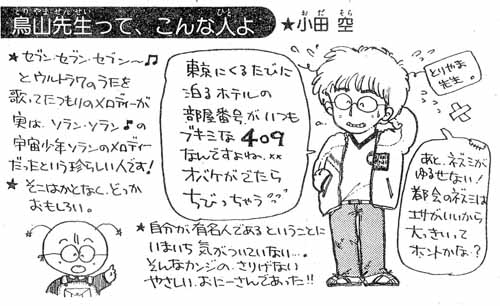 鳥山先生って、こんな人よ ★小田 空
とりやませんせい
ひと
おだ そら
★セブン・セブン・セブン〜♫
とウルトラ7のうたを
歌ってたつもりのメロディーが
実は、ソラン・ソラン♪の
宇宙少年ソランのメロディー
だったという珍らしい人です!
★そこはかとなく、どっか
おもしろい。
東京にくるたびに
泊るホテルの
部屋番号が、いつも
ブキミな409
なんですよね、××
オバケがでたら
ちびっちゃう
とりやま
先生。
あと、ネズミが
ゆるせない!
都会のネズミは
エサがいいから
大っきいって
ホントかな?
★自分が有名人であるということに
いまいち気がついていない…。
そんなカンジの、さりげない
やさしい、おにーさんであった!!